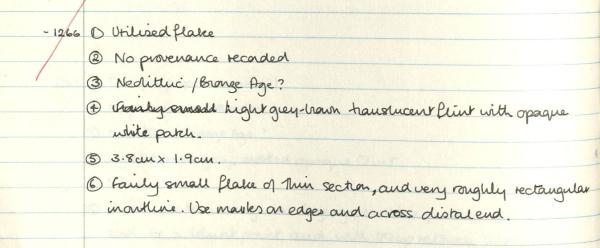 -1266 ① Utilised flake
② No provenance recorded
③ Neolithic / Bronze Age?
④ Fairly small Light grey-brown translucent flint with opaque
white patch.
⑤ 3.8cm x 1.9cm.
⑥ Fairly small flake of thin section, and very roughly rectangular
in outline. Use marks on edges and across distal end.